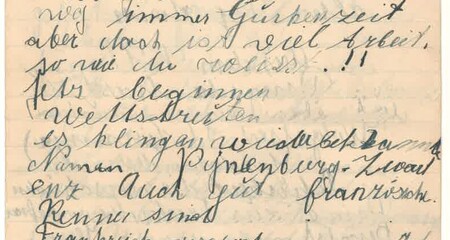 weg immer Gurkenzeit
aber doch ist viel Arbeit.
so wie du weisst !!
Jets beginnen
wettstreiten
es klingen wieder bekannte
Namen Pijnenburg-Zwart
enz Auch gut französche
Renner sind
Frankreich